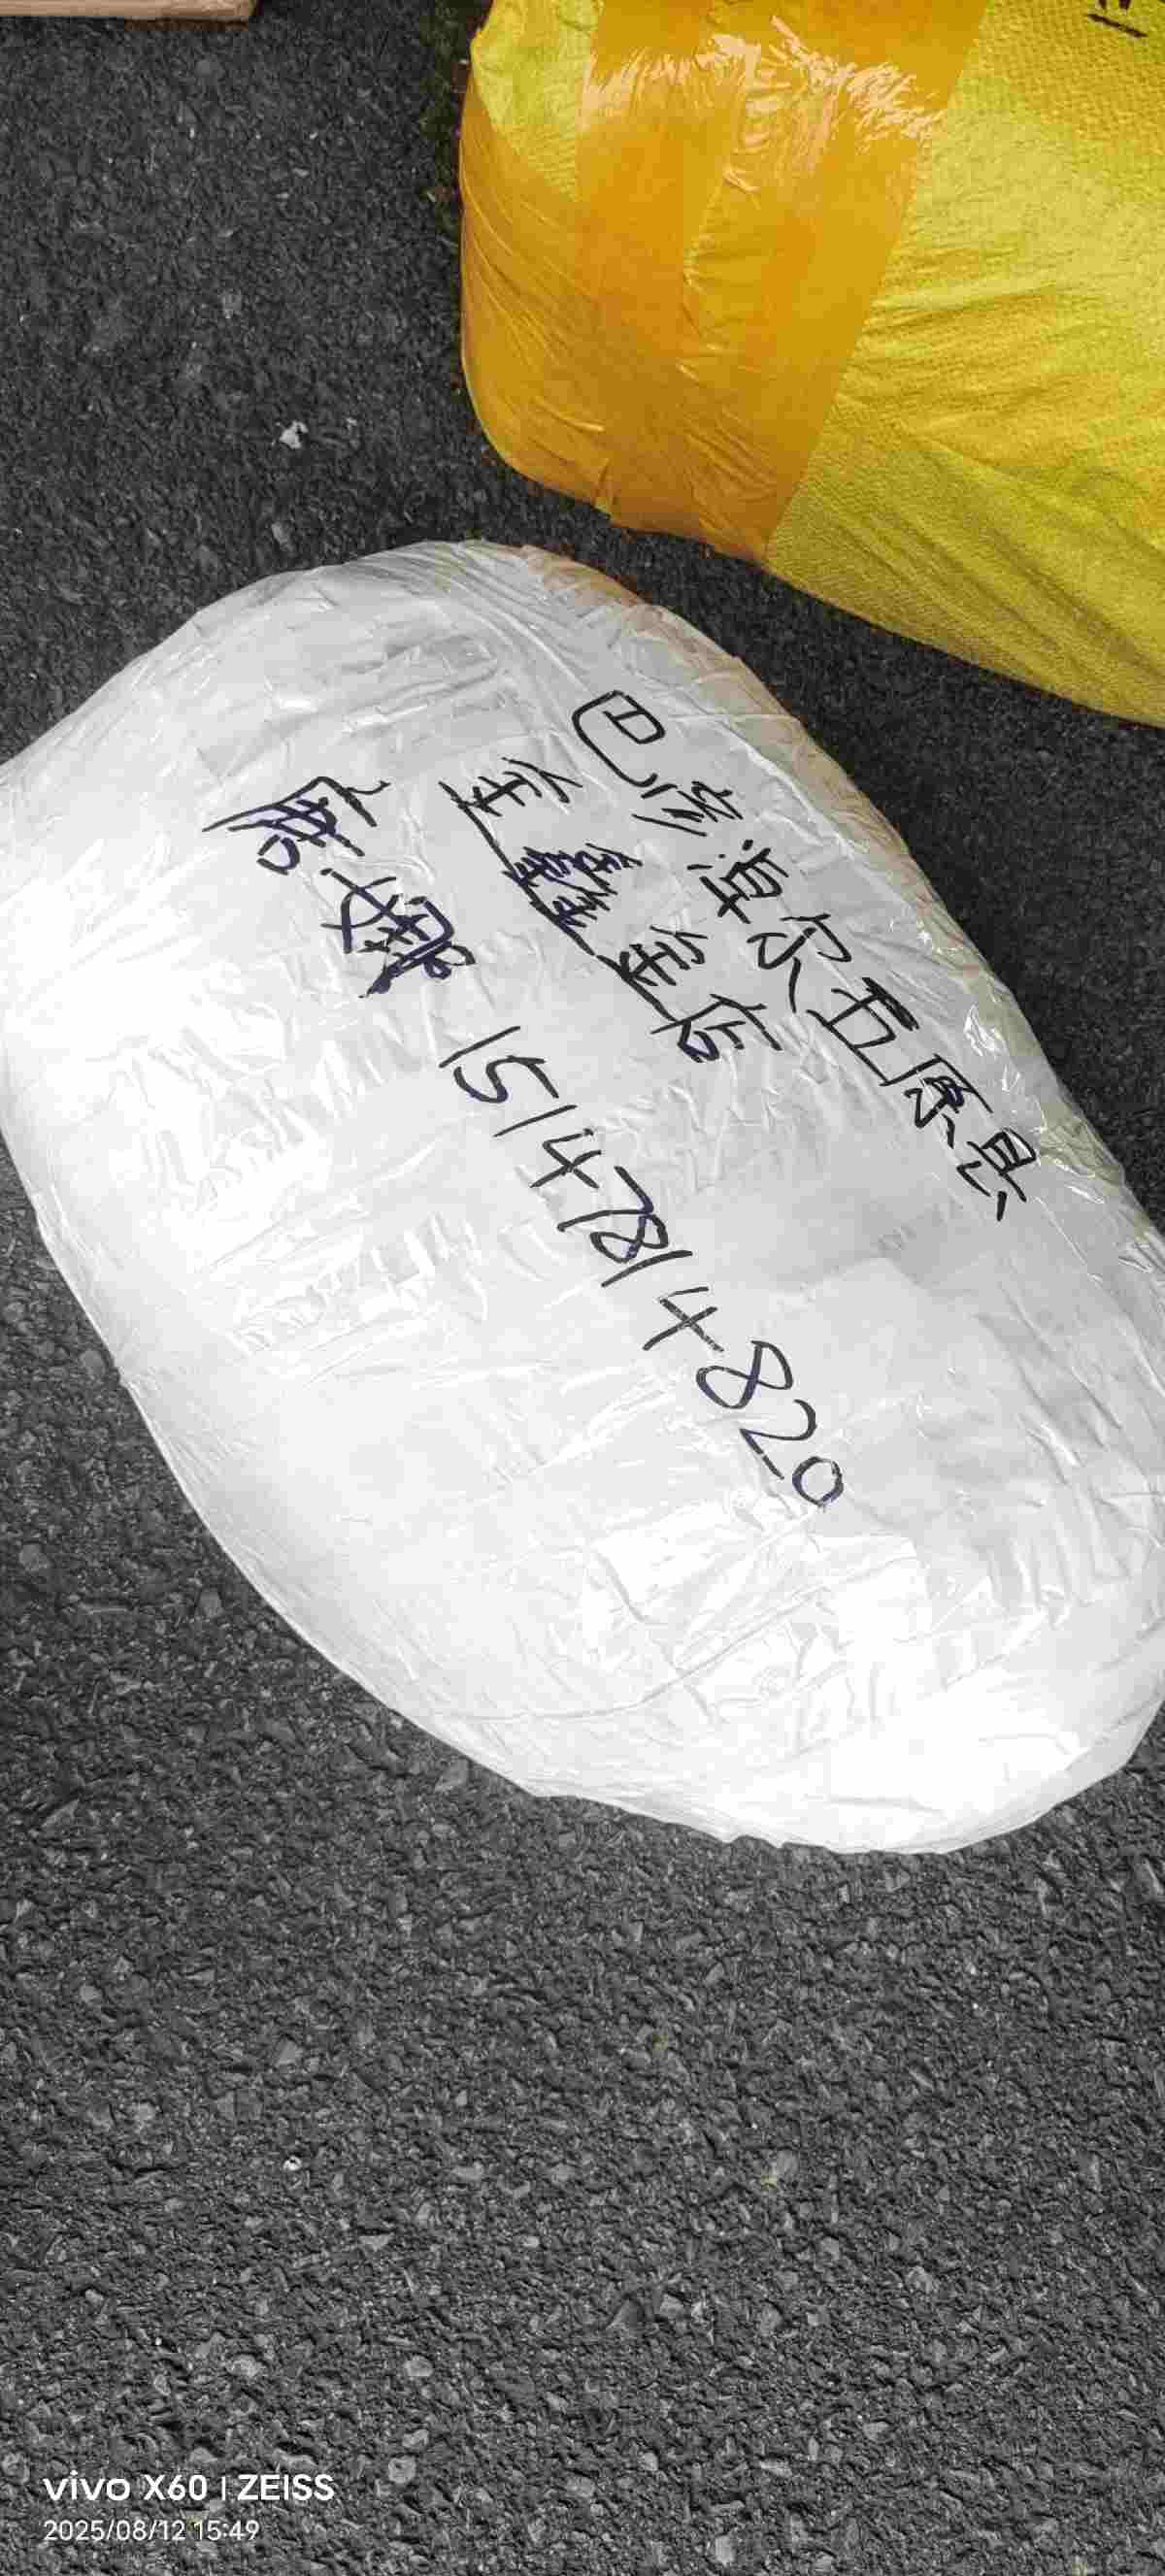 巴彦淖尔五原县
金鑫金店
詹娜 15147814820
vivo X60 | ZEISS
2025/08/12 15:49